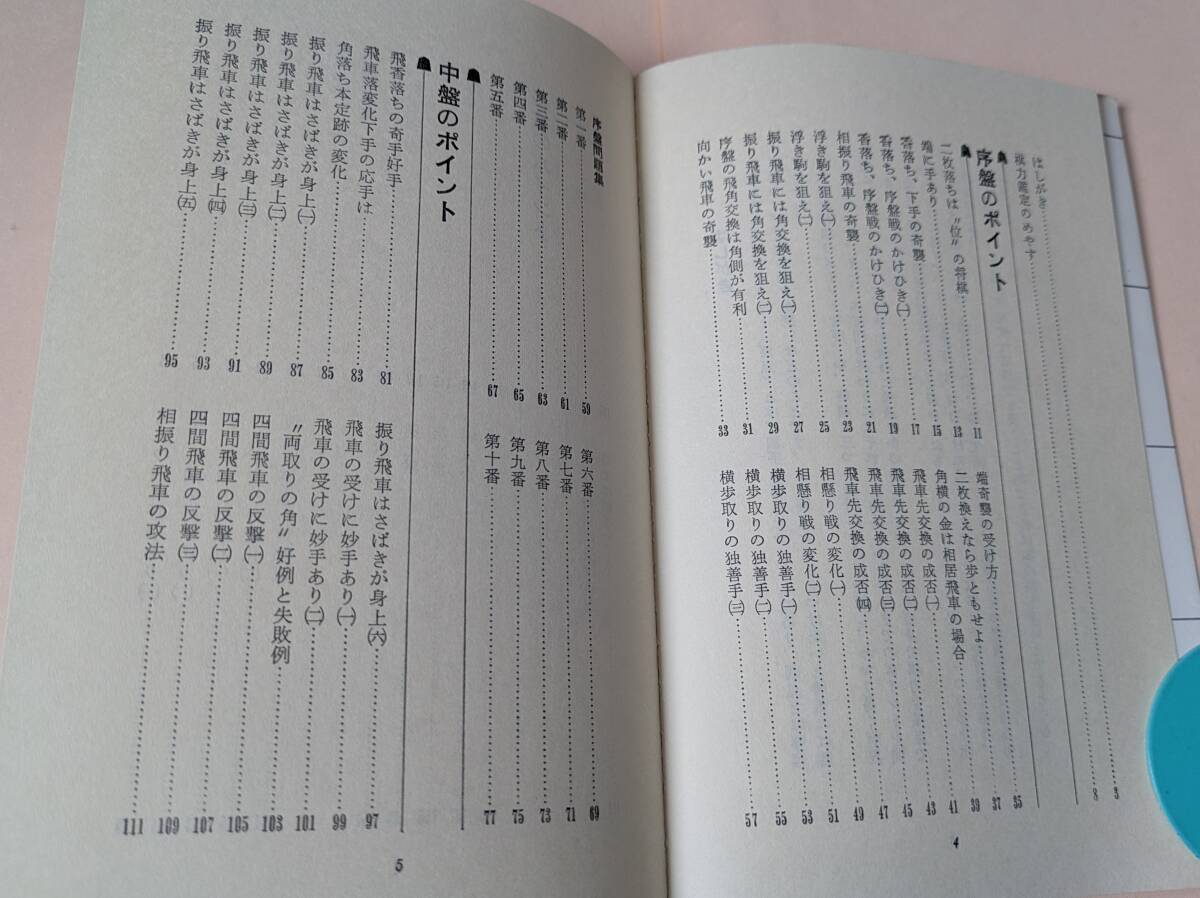 はしがき……3
棋力鑑定のめやす……8
序盤のポイント
二枚落ちは〝位〟の将棋……11
端に手あり……13
香落ち、下手の奇襲……15
香落ち、序盤戦のかけひき㈠……17
香落ち、序盤戦のかけひき㈡……19
相振り飛車の奇襲……21
浮き駒を狙え㈠……23
浮き駒を狙え㈡……25
振り飛車には角交換を狙え㈠……27
振り飛車には角交換を狙え㈡……29
序盤の飛角交換は角側が有利……31
向かい飛車の奇襲……33
端奇襲の受け方……35
二枚換えなら歩ともせよ……37
角横の金は相居飛車の場合……39
飛車先交換の成否㈠……41
飛車先交換の成否㈡……43
飛車先交換の成否㈢……45
飛車先交換の成否㈣……47
相懸り戦の変化㈠……49
相懸り戦の変化㈡……51
横歩取りの独善手㈠……53
横歩取りの独善手㈡……55
横歩取りの独善手㈢……57
4
序盤問題集
第一番……59
第二番……61
第三番……63
第四番……65
第五番……67
第六番……69
第七番……71
第八番……73
第九番……75
第十番……77
中盤のポイント
飛香落ちの奇手好手……81
飛車落変化下手の応手は……83
角落ち本定跡の変化……85
振り飛車はさばきが身上㈠……87
振り飛車はさばきが身上㈡……89
振り飛車はさばきが身上㈢……91
振り飛車はさばきが身上㈣……93
振り飛車はさばきが身上㈤……95
振り飛車はさばきが身上㈥……97
飛車の受けに妙手あり㈠……99
飛車の受けに妙手あり㈡……101
〝両取りの角〟好例と失敗例……103
四間飛車の反撃㈠……105
四間飛車の反撃㈡……107
四間飛車の反撃㈢……109
相振り飛車の攻法……111
5